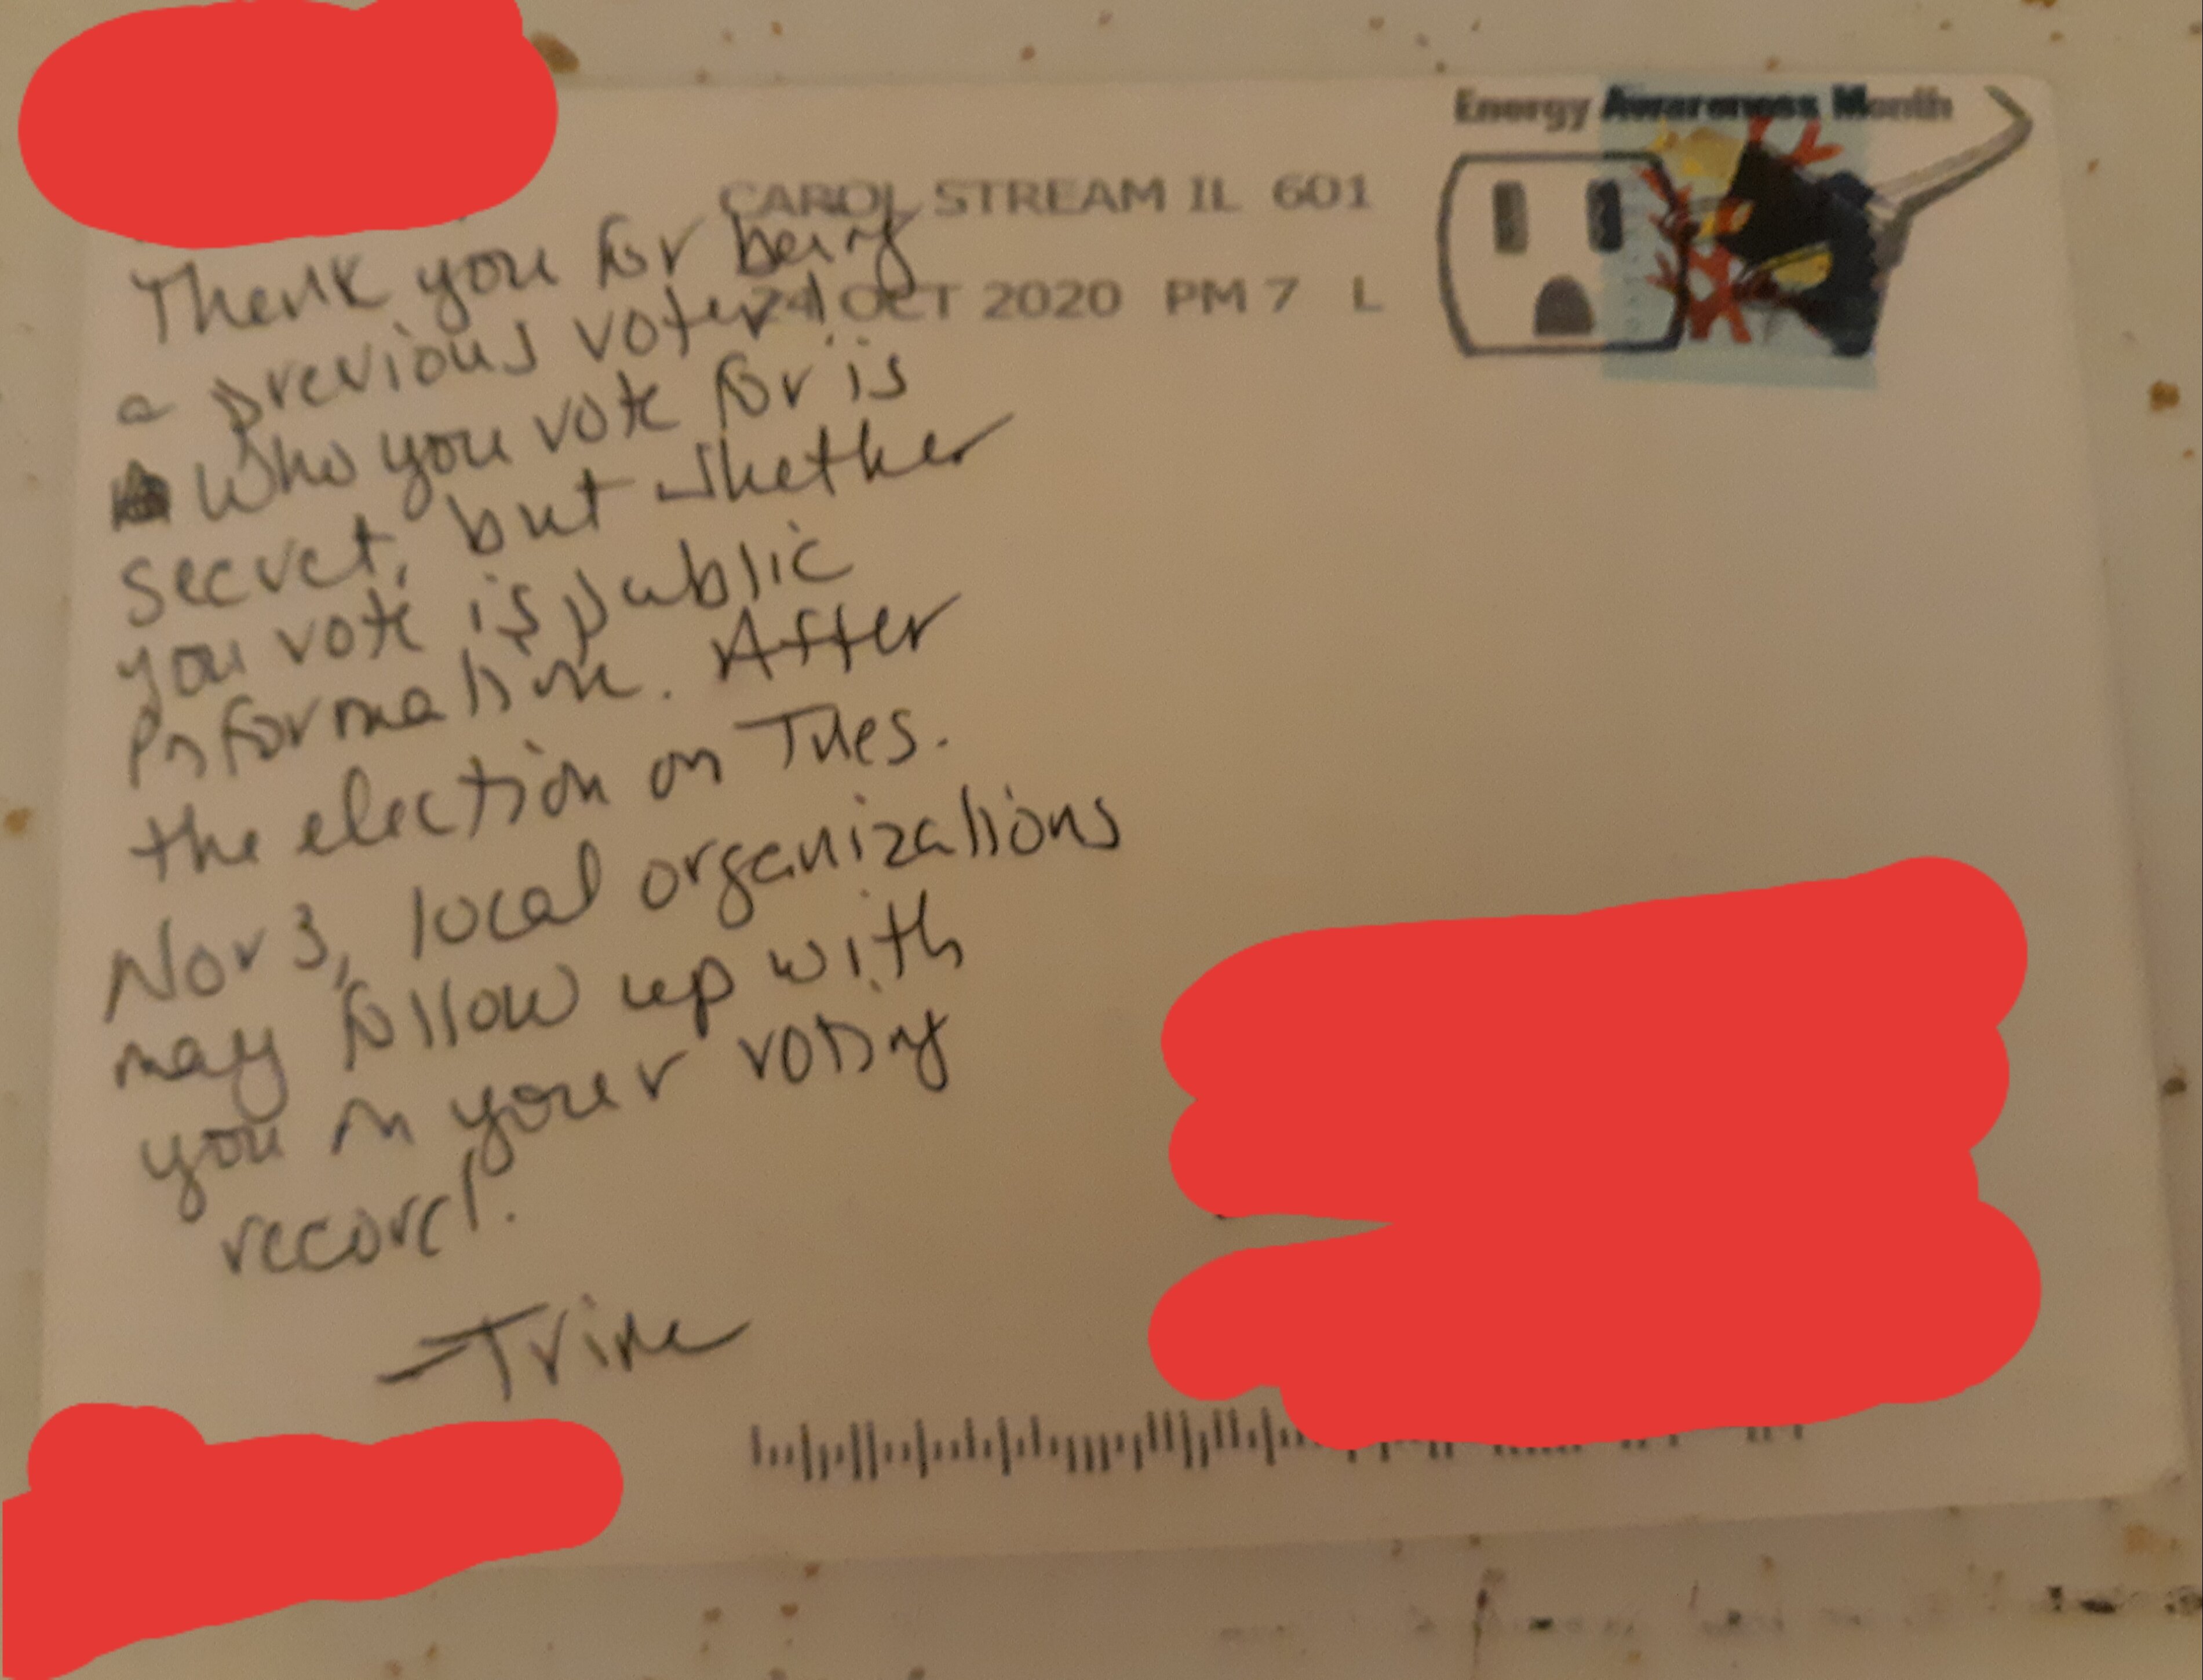 Energy Awareness Month
CAROL STREAM IL 601
24 OCT 2020 PM 7 L
Thank you for being
a previous voter!
Who you vote for is
secret, but whether
you vote is public
information. After
the election on Tues.
Nov 3, local organizations
may follow up with
you on your voting
record.
-Trine